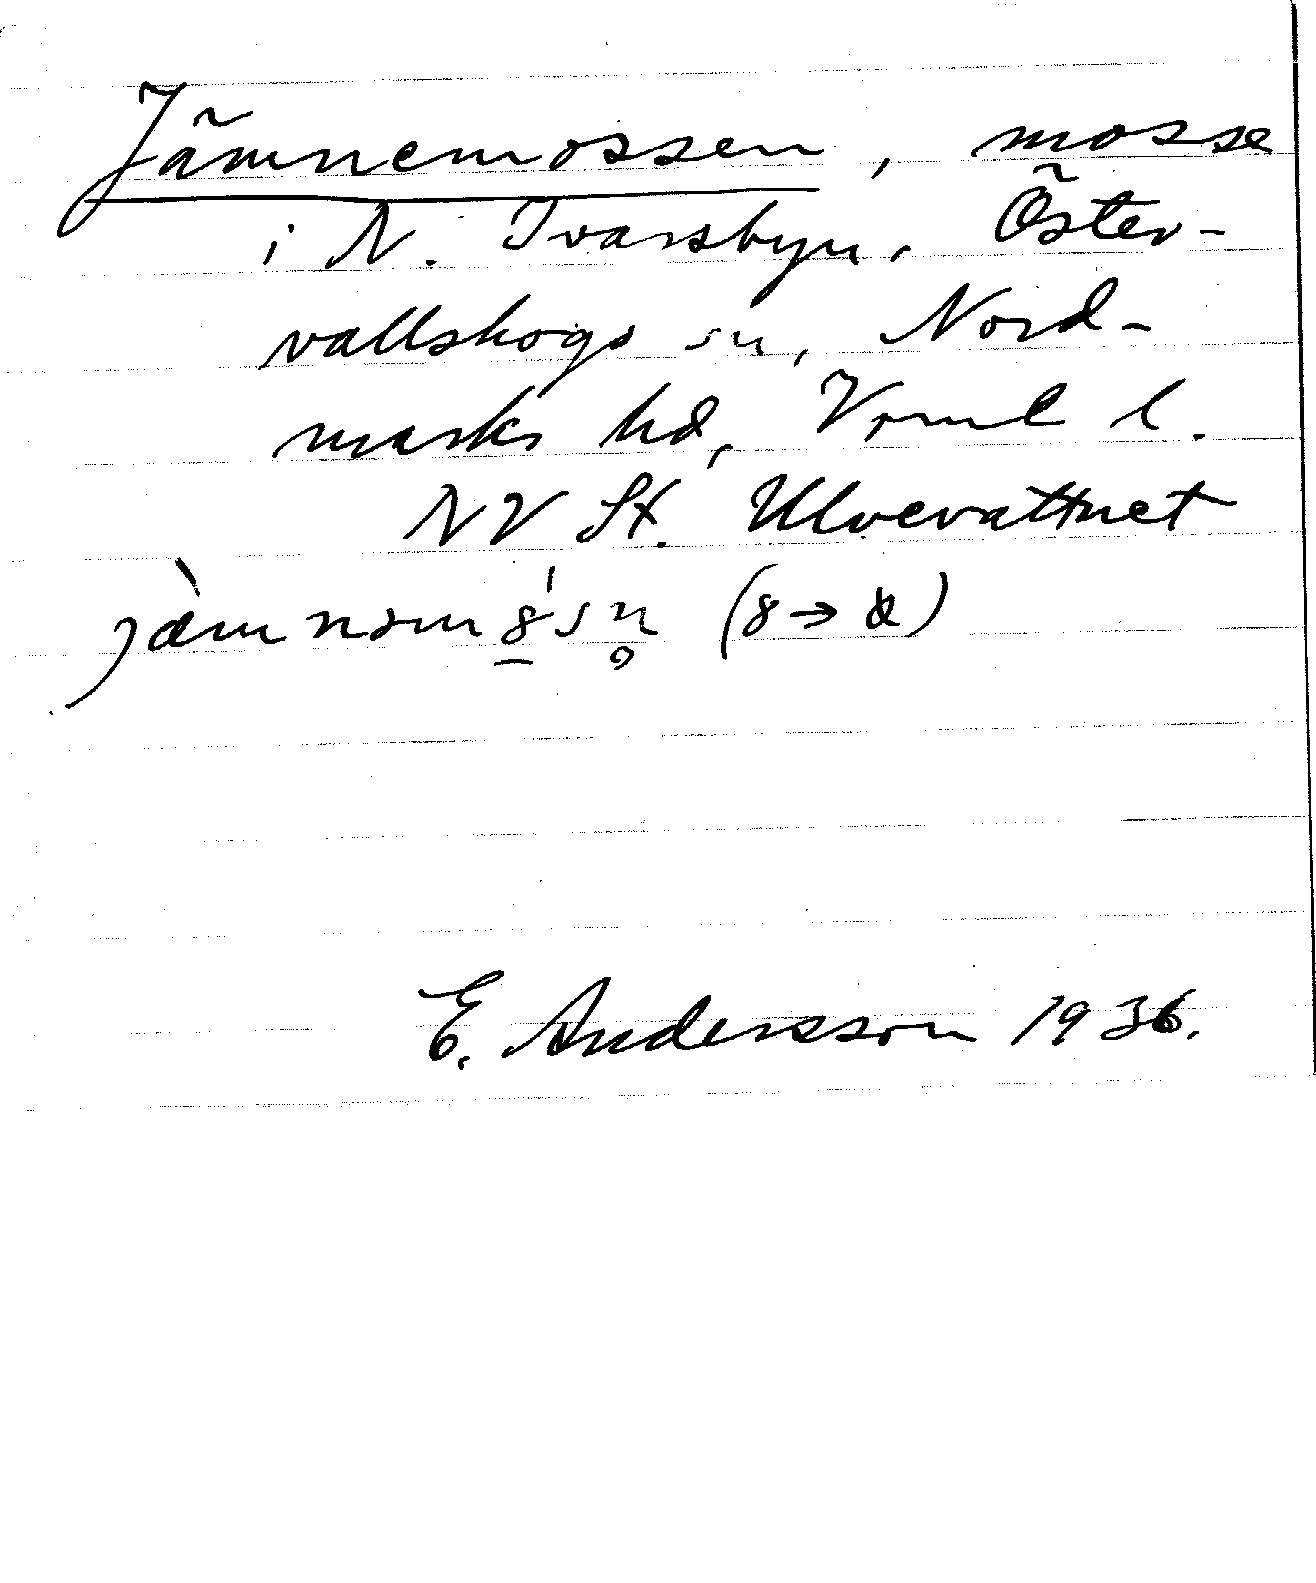 Jämnemossen, mosse
i N. Ivarsbyn, Öster-
vallskogs sn, Nord-
marks hd, Vrml l.
NV St. Ulvevattnet
(8→
E. Andersson 1936.